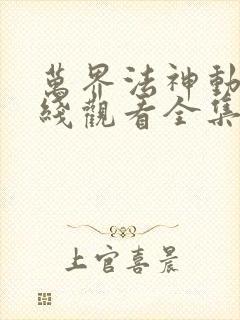 萬界法神動
綫觀看全集
上官喜晨